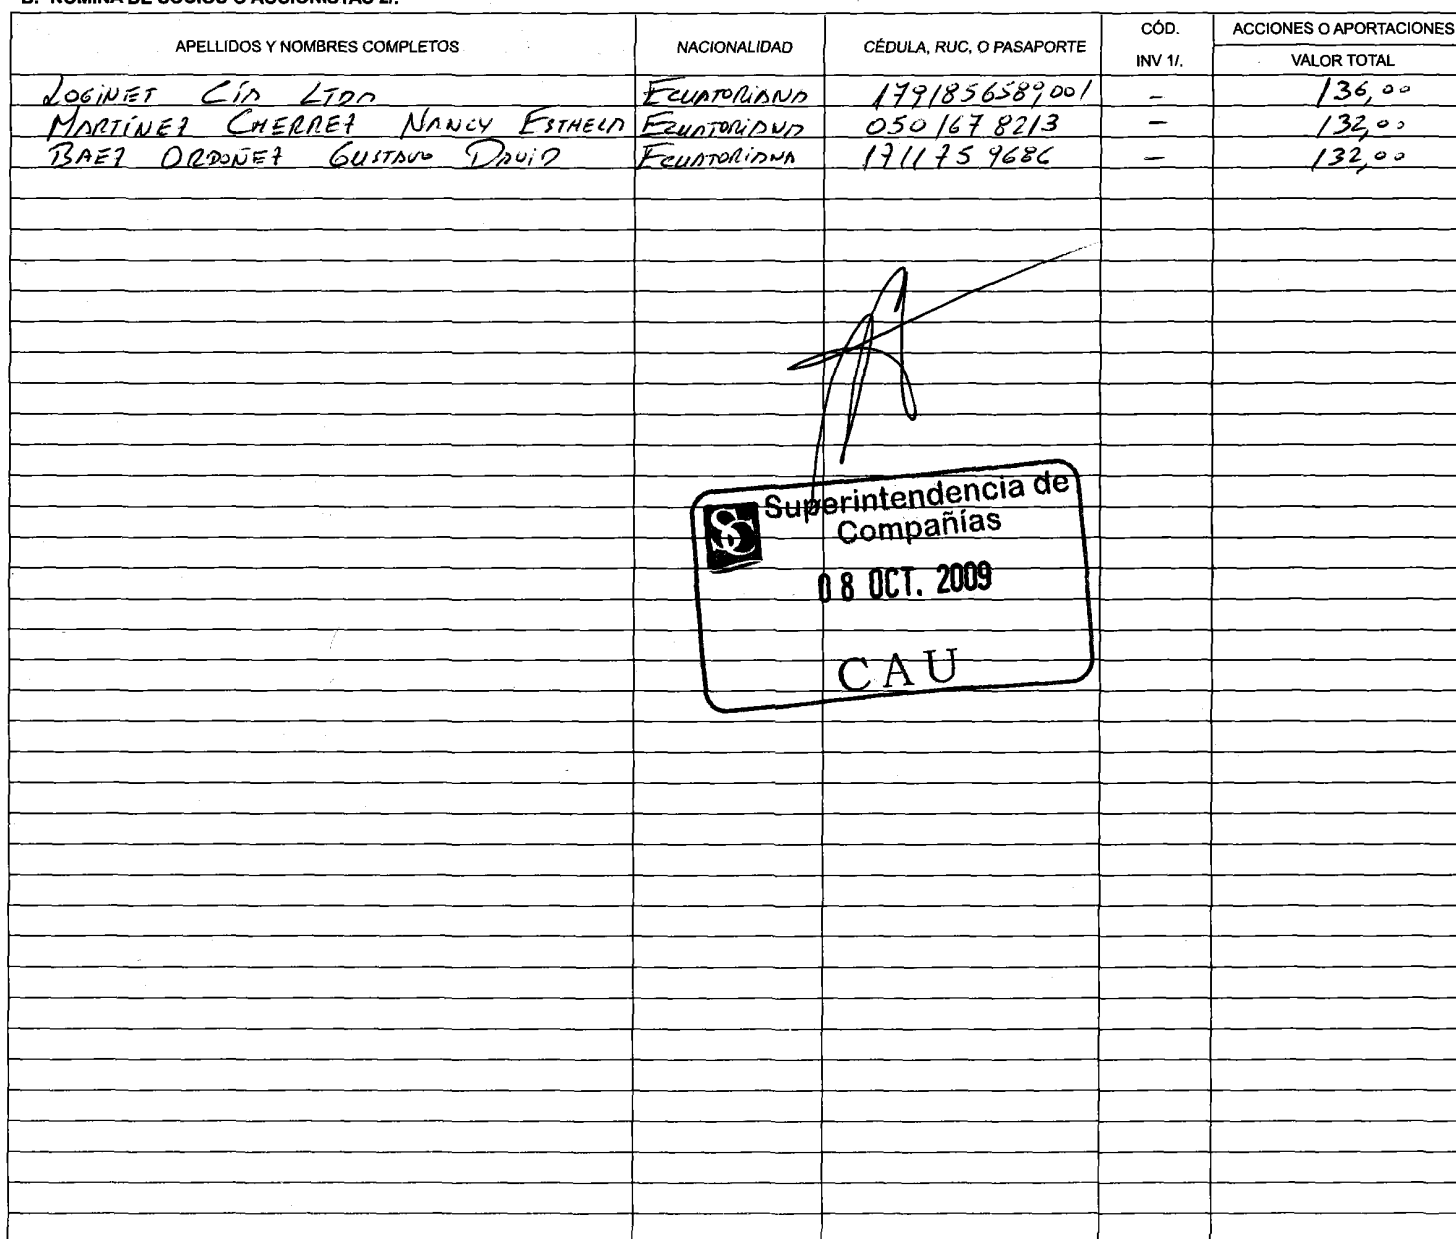 B. NÓMINA DE SOCIOS O ACCIONISTAS 2/.
APELLIDOS Y NOMBRES COMPLETOS NACIONALIDAD CÉDULA, RUC, O PASAPORTE CÓD. INV 1/. ACCIONES O APORTACIONES
VALOR TOTAL
LOGINET CÍA LTDA ECUATORIANA 1791856589001 – 136,00
MARTÍNEZ CHERREZ NANCY ESTHELA ECUATORIANA 0501678213 – 132,00
BAEZ ORDOÑEZ GUSTAVO DAVID ECUATORIANA 1711759686 – 132,00
SC Superintendencia de
Compañías
08 OCT. 2009
CAU